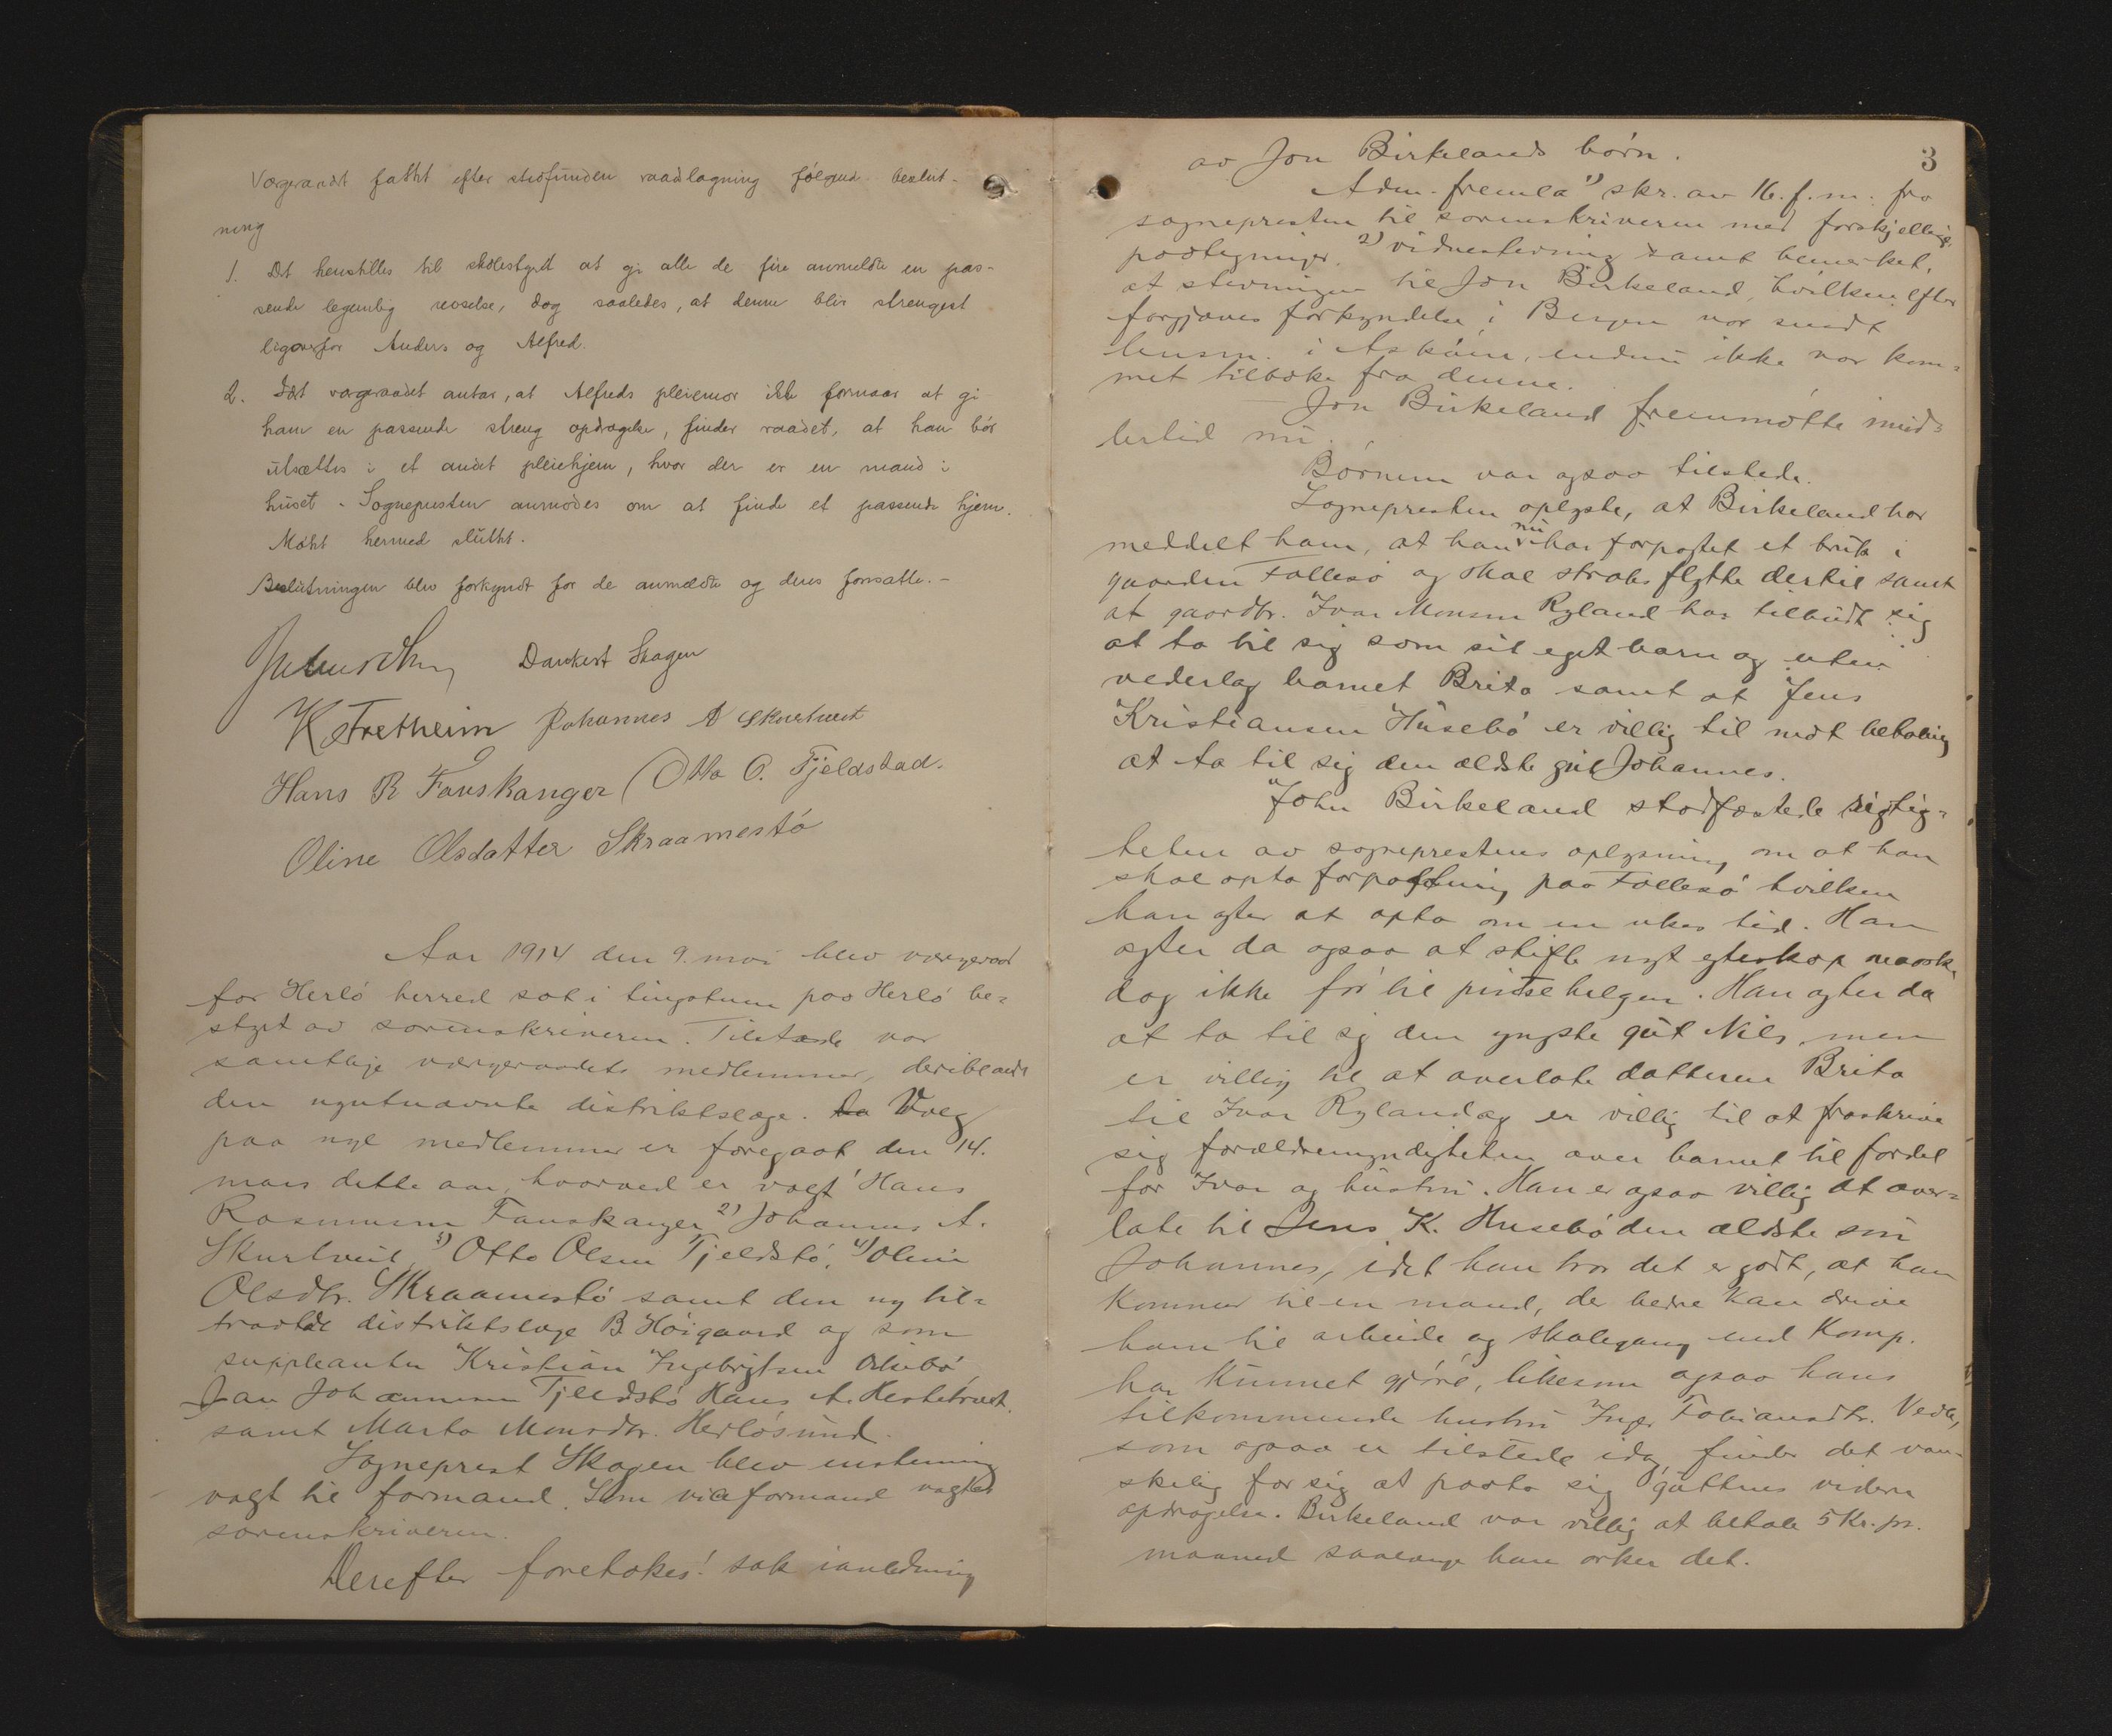 Værgeraadet fattet efter stedfunden raadslagning følgende beslut-
ning
1. Det henstilles til skolestyret at gi alle de fire anmeldte en pas-
sende legemlig revselse, dog saaledes, at denne blir strengest
ligeoverfor Anders og Alfred.
2. Idet vergeraadet antar, at Alfreds pleiemor ikke formaar at gi
ham en passende streng opdragelse, finder raadet, at han bør
utsættes i et andet pleiehjem, hvor der er en mand i
huset. Sognepresten anmodes om at finde et passende hjem.
Møtet hermed sluttet.
Beslutningen blev forkyndt for de anmeldte og deres foresatte.-
Dankert Skagen
K Fretheim Johannes A Skurtveit
Hans R Fauskanger Otto O. Fjeldstad.
Oline Olsdatter Skraamestø
Aar 1914 den 9. mai blev vergeraad
for Herlø herred sat i tingstuen paa Herlø be-
styret av sorenskriveren. Tilstede var
samtlige værgeraadets medlemmer, deriblandt
den nyutnævnte distriktslæge. Da Valg
paa nye medlemmer er foregaat den 14.
mars dette aar, hvorved er valgt 1) Hans
Rasmussen Fauskanger 2) Johannes A.
Skurtveit, 3) Otto Olsen Tjeldstø, 4) Oline
Olsdtr. Skraamestø samt den ny til-
traadte distriktslæge B Høigaard og som
suppleanter Kristian Ingebrigtsen
Jan Johannesen Tjeldstø Hans A. Hestetræet
samt Marta Monsdtr. Herløsund.
Sogneprest Skagen blev enstemmig
valgt til formand. Som viceformand valgtes
sorenskriveren.
Derefter foretokes: sak i anledning
3
av Jon Birkelands børn.
Adm. fremla 1) skr. av 16. f. m. fra
sognepresten til sorenskriveren med forskjellige
paategninger. 2) vidnestevning samt bemerket,
at stevningen til Jon Birkeland, hvilken efter
forgjæves forkyndelse i Bergen var sendt
lensm. i Askøen, endnu ikke var kom-
met tilbake fra denne.
Jon Birkeland fremmøtte imid-
lertid nu.
Børnene var ogsaa tilstede.
Sognepresten oplyste, at Birkeland har
meddelt ham, at han nu har forpagtet et bruk i
gaarden Follesø og skal straks flytte dertil samt
at gaardbr. Ivar Monsen Ryland har tilbudt sig
at ta til sig som sit eget barn og uten
vederlag barnet Brita samt at Jens
Kristiansen Husebø er villig til mot betaling
at ta til sig den ældste gut Johannes.
John Birkeland stadfæstede rigtig-
heten av sogneprestens oplysning om at han
skal opta forpagtning paa Follesø hvilken
han agter at opta om en ukes tid. Han
agter da ogsaa at stifte nyt egteskap maaske
dog ikke før til pintsehelgen. Han agter da
at ta til sig den yngste gut Nils, men
er villig til at overlate datteren Brita
til Ivar Ryland og er villig til at fraskrive
sig forældremyndigheten over barnet til fordel
for Ivar og hustru. Han er ogsaa villig at over-
late til Jens K. Husebø den ældste søn
Johannes, idet han tror det er godt, at han
kommer til en mand, der bedre kan drive
ham til arbeide og skolegang end Komp.
har kunnet gjøre, likesom ogsaa hans
tilkommende hustru Inger Tobiasdtr. Vedle,
som ogsaa er tilstede idag, finder det van-
skelig for sig at paata sig guttens videre
opdragelse. Birkeland var villig at betale 5 Kr. pr.
maaned saalænge han orker det.